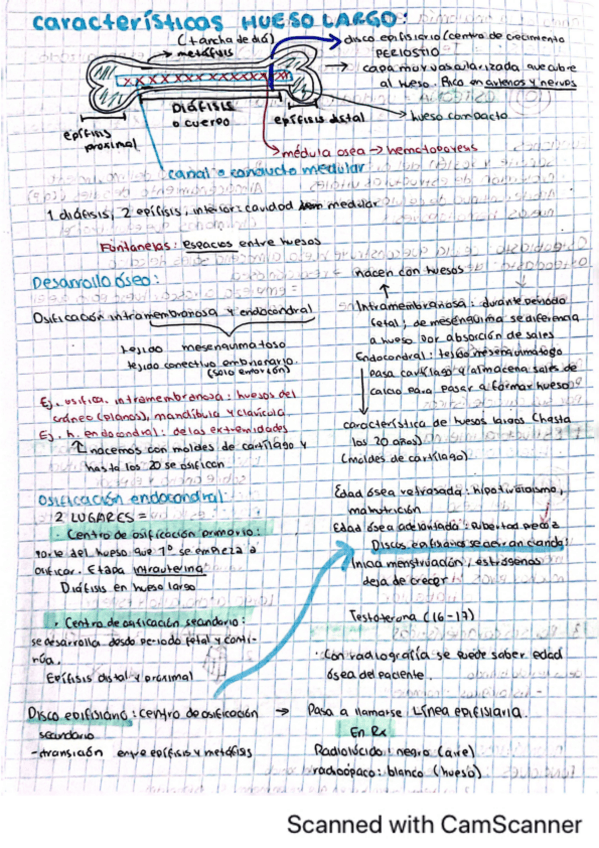 características HUESO LARGO:
(+ ancha de dió)
metáfisis
disco epifisiario (centro de crecimiento
PERIOSTIO
capa muy vascularizada que cubre
al hueso. Rico en arterias y nervios
hueso compacto
Diáfisis
o cuerpo
epífisis distal
epífisis
proximal
médula ósea → hematopoyesis
canal o conducto medular
1 diáfisis, 2 epífisis, interior: cavidad medular
Fontanelas: Espacios entre huesos
Desarrollo óseo:
Osificación intramembranosa y endocondral
tejido mesenquimatoso
tejido conectivo embrionario
(solo embrión)
Ej. osifica. intramembranosa: huesos del
cráneo (planos), mandíbula y clavícula
Ej. h. endocondral: de las extremidades
nacemos con moldes de cartílago y
hasta los 20 se osifican
nacen con huesos
Intramembranosa: durante periodo
fetal; de mesénquima se diferencia
a hueso por absorción de sales
Endocondral: tejido mesenquimatoso
pasa cartílago y almacena sales de
calcio para pasar a formar hueso
característica de huesos largos (hasta
los 20 años)
(moldes de cartílago)
Osificación endocondral:
2 LUGARES =
· Centro de osificación primario:
parte del hueso que 1º se empieza a
osificar. Etapa intrauterina
Diáfisis en hueso largo
· Centro de osificación secundario:
se desarrolla desde periodo fetal y conti-
núa.
Epífisis distal y proximal
Disco epifisiario: centro de osificación
secundario
- transición entre epífisis y metáfisis
Edad ósea retrasada: hipotiroidismo,
malnutrición
Edad ósea adelantada: Pubertad precoz
Discos epifisiarios se cierran cuando:
Inicia menstruación, estrógenos
deja de crecer
Testosterona (16-17)
· Con radiografía se puede saber edad
ósea del paciente.
→ Pasa a llamarse: Línea epifisiaria.
En Rx
Radiolúcido: negro (aire)
radioópaco: blanco (hueso)
Scanned with CamScanner